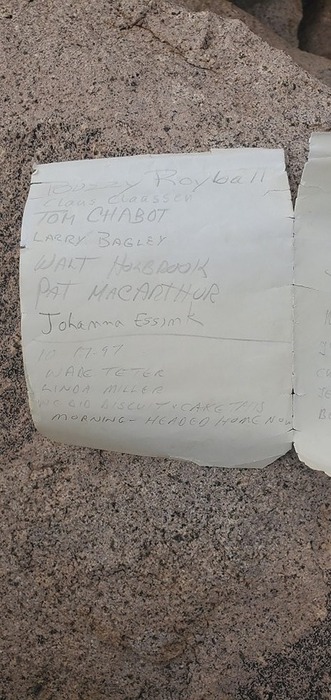 Roybal
Claus Claassen
TOM CHABOT
LARRY BAGLEY
WALT HOLBROOK
PAT MACARTHUR
Johanna Essink
97
WADE TETER
LINDA MILLER
WE DID BISCUIT THIS
MORNING - HEADED HOME NOW